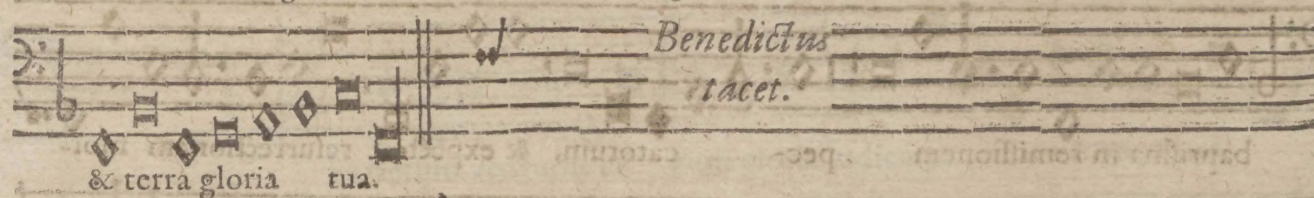 Benedictus
tacet.
& terra gloria tua.